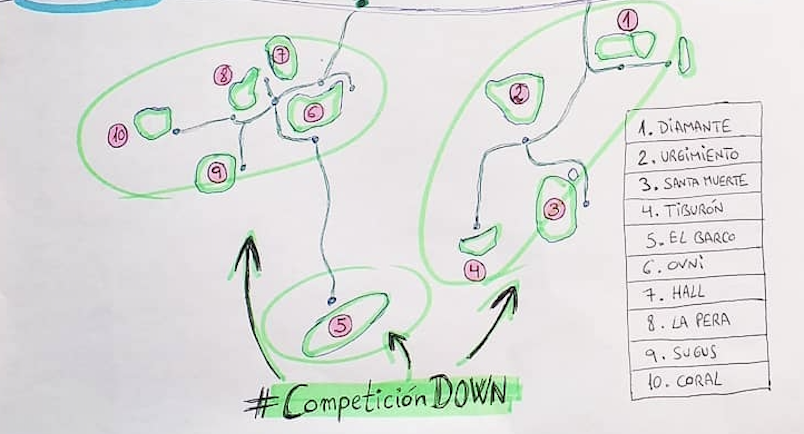 1
7
8
2
6
10
9
3
4
5
1. DIAMANTE
2. URGIMIENTO
3. SANTA MUERTE
4. TIBURÓN
5. EL BARCO
6. OVNI
7. HALL
8. LA PERA
9. SUGUS
10. CORAL
#Competición DOWN